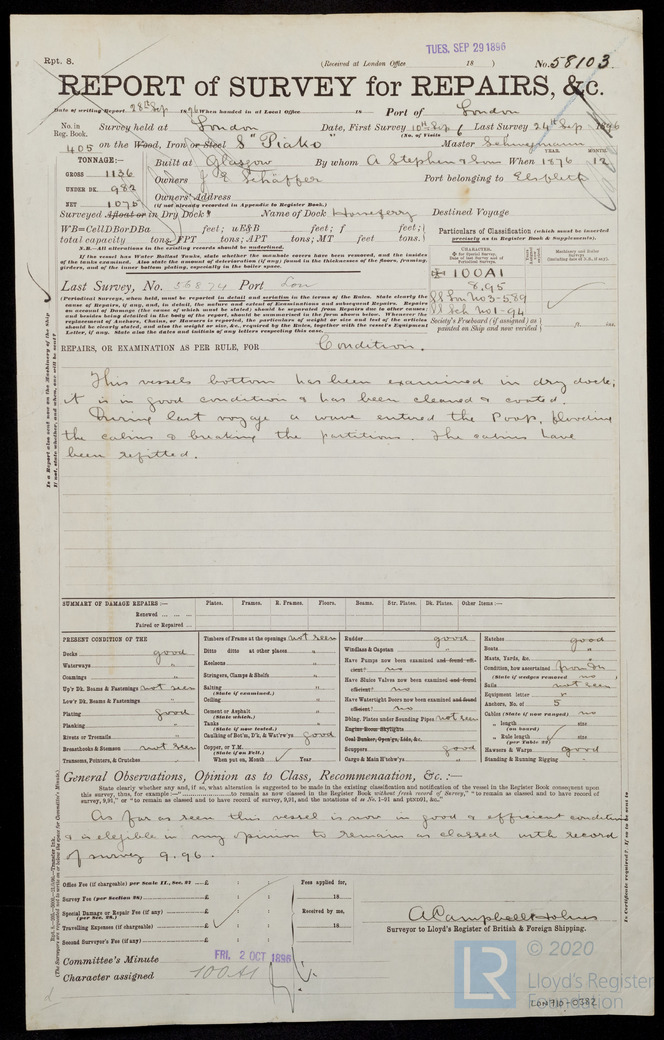 TUES, SEP 29 1896
Rpt. 8.
(Received at London Office 18 )
No. 58103
REPORT of SURVEY for REPAIRS, &c.
Date of writing Report 28th Sep 1896 When handed in at Local Office 18 Port of London
No. in Reg. Book. Survey held at London Date, First Survey 10th Sep Last Survey 24th Sep 1896
(No. of Visits 6
405 on the Wood, Iron or Steel S Piako Master
TONNAGE:—
GROSS 1136
UNDER DK. 982
NET 1075
Built at Glasgow By whom A Stephen & Son When 1876 12
YEAR. MONTH.
Owners J E Schäffer Port belonging to Elsfleth
Owners' Address
(if not already recorded in Appendix to Register Book.)
Surveyed Afloat or in Dry Dock? Name of Dock Horseferry Destined Voyage
WB=CellDBorDBa feet; uE&B feet; f feet;
total capacity tons. FPT tons; APT tons; MT feet tons.
N.B.—All alterations in the existing records should be underlined.
If the vessel has Water Ballast Tanks, state whether the manhole covers have been removed, and the insides
of the tanks examined. Also state the amount of deterioration (if any) found in the thicknesses of the floors, framing,
girders, and of the inner bottom plating, especially in the boiler space.
Particulars of Classification (which must be inserted
precisely as in Register Book & Supplements).
CHARACTER.
100A1
8,95
SS Lon No3-5.89
No1-94
Society's Freeboard (if assigned) as
painted on Ship and now verified ft. ins.
Last Survey, No. 56874 Port Lon
(Periodical Surveys, when held, must be reported in detail and seriatim in the terms of the Rules. State clearly the
cause of Repairs, if any, and, in detail, the nature and extent of Examinations and subsequent Repairs. Repairs
on account of Damage (the cause of which must be stated) should be separated from Repairs due to other causes;
and besides being detailed in the body of the report, should be summarised in the form shown below. Whenever the
replacement of Anchors, Chains, or Hawsers is reported, the particulars of weight or size and test of the articles
should be clearly stated, and also the weight or size, &c., required by the Rules, together with the vessel's Equipment
Letter, if any. State also the dates and initials of any letters respecting this case.
REPAIRS, OR EXAMINATION AS PER RULE, FOR Condition.
This vessels bottom has been examined in dry dock,
it is in good condition & has been cleaned & coated.
During last voyage a wave entered the Poop, flooding
the cabins & breaking the partitions. The cabins have
been refitted.
SUMMARY OF DAMAGE REPAIRS:— Plates. Frames. R. Frames. Floors. Beams. Str. Plates. Dk. Plates. Other Items:—
Renewed
Faired or Repaired
PRESENT CONDITION OF THE
Decks good
Waterways "
Coamings "
Up'r Dk. Beams & Fastenings not seen
Low'r Dk. Beams & Fastenings
Plating good
Planking "
Rivets or Treenails "
Breasthooks & Stemson not seen
Transoms, Pointers, & Crutches "
Timbers of Frame at the openings not seen
Ditto ditto at other places "
Keelsons "
Stringers, Clamps & Shelfs "
Salting "
(State if examined.)
Ceiling "
Cement or Asphalt "
(State which.)
Tanks "
(State if now tested.)
Caulking of Bot'm, D'k, & Wat'rw'ys good
Copper, or Y.M.
(State if on Felt.)
When put on, Month Year
Rudder good
Windlass & Capstan "
Have Pumps now been examined and found efficient? no
Have Sluice Valves now been examined and found efficient? no
Have Watertight Doors now been examined and found efficient? no
Dbling. Plates under Sounding Pipes not seen
Engine Room Skylights
Coal Bunker, Open'gs, Lids, &c.
Scuppers good
Cargo & Main H'tchw'ys "
Hatches good
Boats "
Masts, Yards, &c. "
Condition, how ascertained from Dk
(State if wedges removed no )
Sails not seen
Equipment letter r
Anchors, No. of 5
Cables (State if now ranged) no
" length
" size
" Rule length
(per Table 22) size
Hawsers & Warps good
Standing & Running Rigging "
General Observations, Opinion as to Class, Recommendation, &c.:—
State clearly whether any, and if so, what alteration is suggested to be made in the existing classification and notification of the vessel in the Register Book consequent upon
this survey, thus, for example:—"to remain as now classed in the Register Book without fresh record of Survey," "to remain as classed and to have record of
survey, 9,91," or "to remain as classed and to have record of survey, 9,91, and the notations of ss No. 1-91 and ptND91, &c."
As far as seen this vessel is now in good & efficient condition
& is eligible in my opinion to remain as classed with record
of survey 9.96.
Office Fee (if chargeable) per Scale II., Sec. 27 £ : :
Survey Fee (per Section 28) £ : :
Special Damage or Repair Fee (if any) £ : :
(per Sec. 28.)
Travelling Expenses (if chargeable) £ : :
Second Surveyor's Fee (if any) £ : :
Fees applied for,
18
Received by me,
18
A Campbell Holms
Surveyor to Lloyd's Register of British & Foreign Shipping.
Committee's Minute FRI. 2 OCT 1896
Character assigned 100A1
© 2020
LR
Lloyd's Register
Foundation
LON910-0382